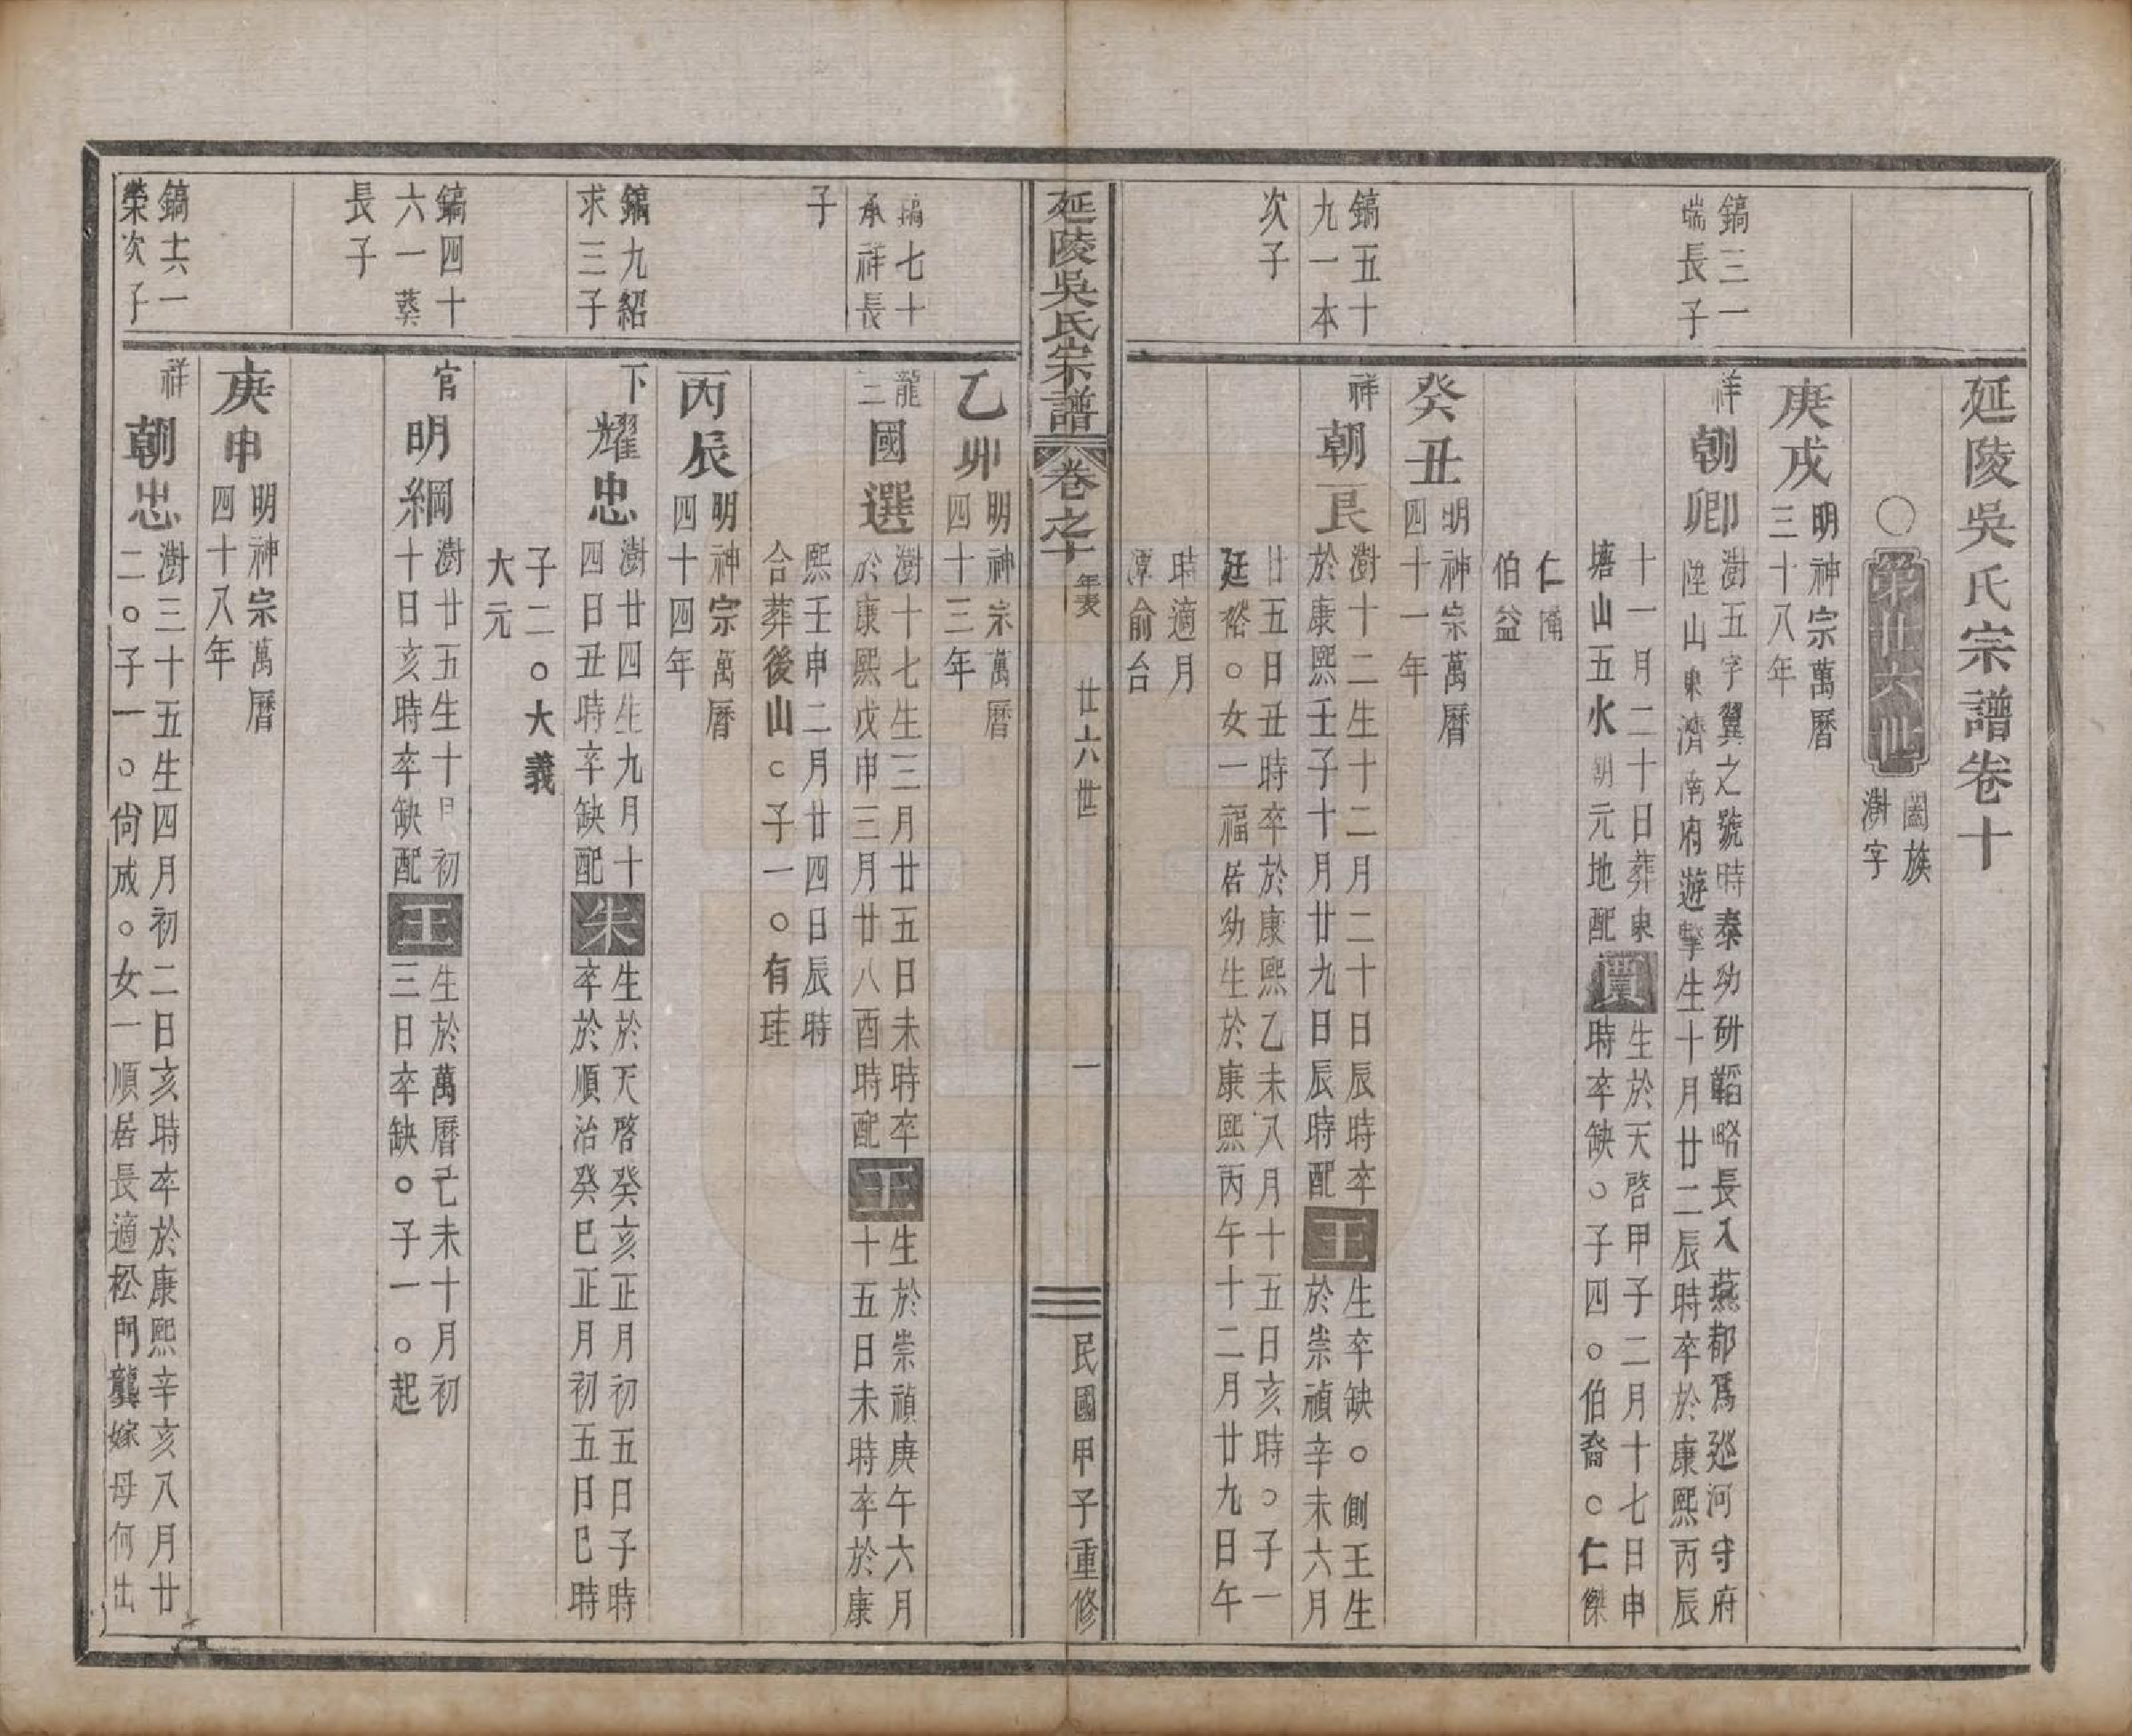 延陵吳氏宗譜卷十
○第廿六世
闔族
澍字
庚戌
明神宗萬曆
三十八年
鎬三一
端長子
祥
朝卿
澍五字翼之號時泰幼研韜略長入燕都爲廵河守府
陞山東濟南府遊擊生十月廿二辰時卒於康熙丙辰
十一月二十日葬東
塘山五火朝元地配
賈
生於天啓甲子二月十七日申
時卒缺○子四○伯裔○仁傑
仁
伯益
癸丑
明神宗萬曆
四十一年
鎬五十
九一本
次子
祥
朝艮
澍十二生十二月二十日辰時卒
於康熙壬子十月廿九日辰時配
王
生卒缺○側王生
於崇禎辛未六月
廿五日丑時卒於康熙乙未八月十五日亥時○子一
廷裕○女一福居幼生於康熙丙午十二月廿九日午
時適月
潭俞台
延陵吳氏宗譜
卷之十
年表
廿六世
一
民國甲子重修
乙卯
明神宗萬曆
四十三年
鎬七十
承祥長
子
龍
三
國選
澍十七生三月廿五日未時卒
於康熙戊申三月廿八酉時配
王
生於崇禎庚午六月
十五日未時卒於康
熙壬申二月廿四日辰時
合葬後山○子一○有珪
丙辰
明神宗萬曆
四十四年
鎬九紹
求三子
下
耀忠
澍廿四生九月十
四日丑時卒缺配
朱
生於天啓癸亥正月初五日子時
卒於順治癸巳正月初五日巳時
子二○大義
大元
鎬四十
六一葵
長子
官
明綱
澍廿五生十月初
十日亥時卒缺配
王
生於萬曆己未十月初
三日卒缺○子一○起
庚申
明神宗萬曆
四十八年
鎬六一
榮次子
祥
朝忠
澍三十五生四月初二日亥時卒於康熙辛亥八月廿
二○子一○尙成○女一順居長適松門龔嫁母何出